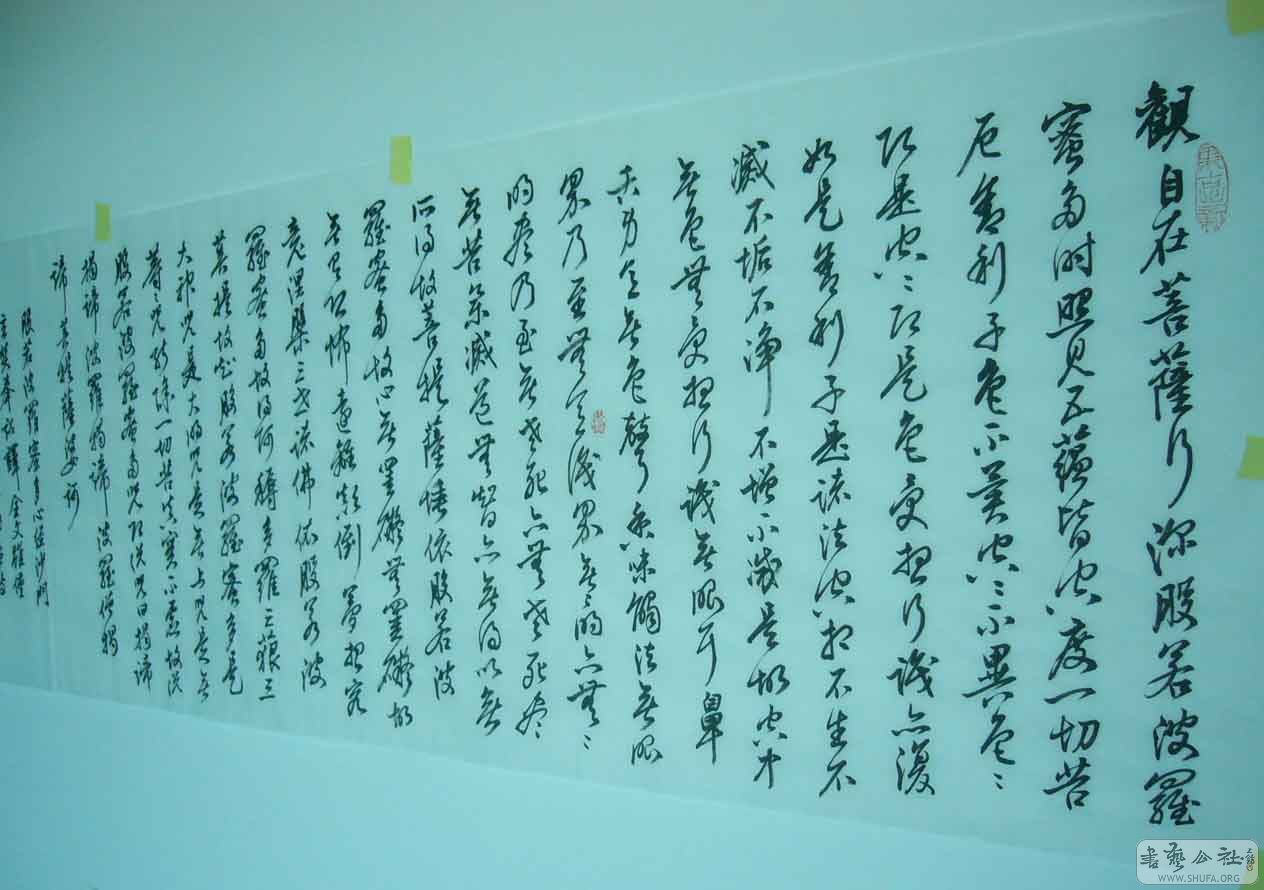 觀自在菩薩行深般若波羅
蜜多时照見五蘊皆空度一切苦
厄舍利子色不異空〻不異色〻
即是空〻即是色受想行識亦復
如是舍利子是諸法空相不生不
滅不垢不淨不增不減是故空中
無色無受想行識無眼耳鼻
舌身意無色聲香味觸法無眼
界乃至無意識界無〻明亦無〻
明盡乃至無老死亦無老死盡
無苦集滅道無智亦無得以無
所得故菩提薩埵依般若波
羅蜜多故心無罣礙無罣礙故
無有恐怖遠離顛倒夢想究
竟涅槃三世諸佛依般若波
羅蜜多故得阿耨多羅三藐三
菩提故知般若波羅蜜多是
大神咒是大明咒是無上咒是無
等〻咒能除一切苦真實不虛故說
般若波羅蜜多咒即說咒曰揭諦
揭諦波羅揭諦波羅僧揭
諦菩提薩婆訶
般若波羅蜜多心經沙門
玄奘奉詔譯全文
書藝公社
WWW.SHUFA.ORG